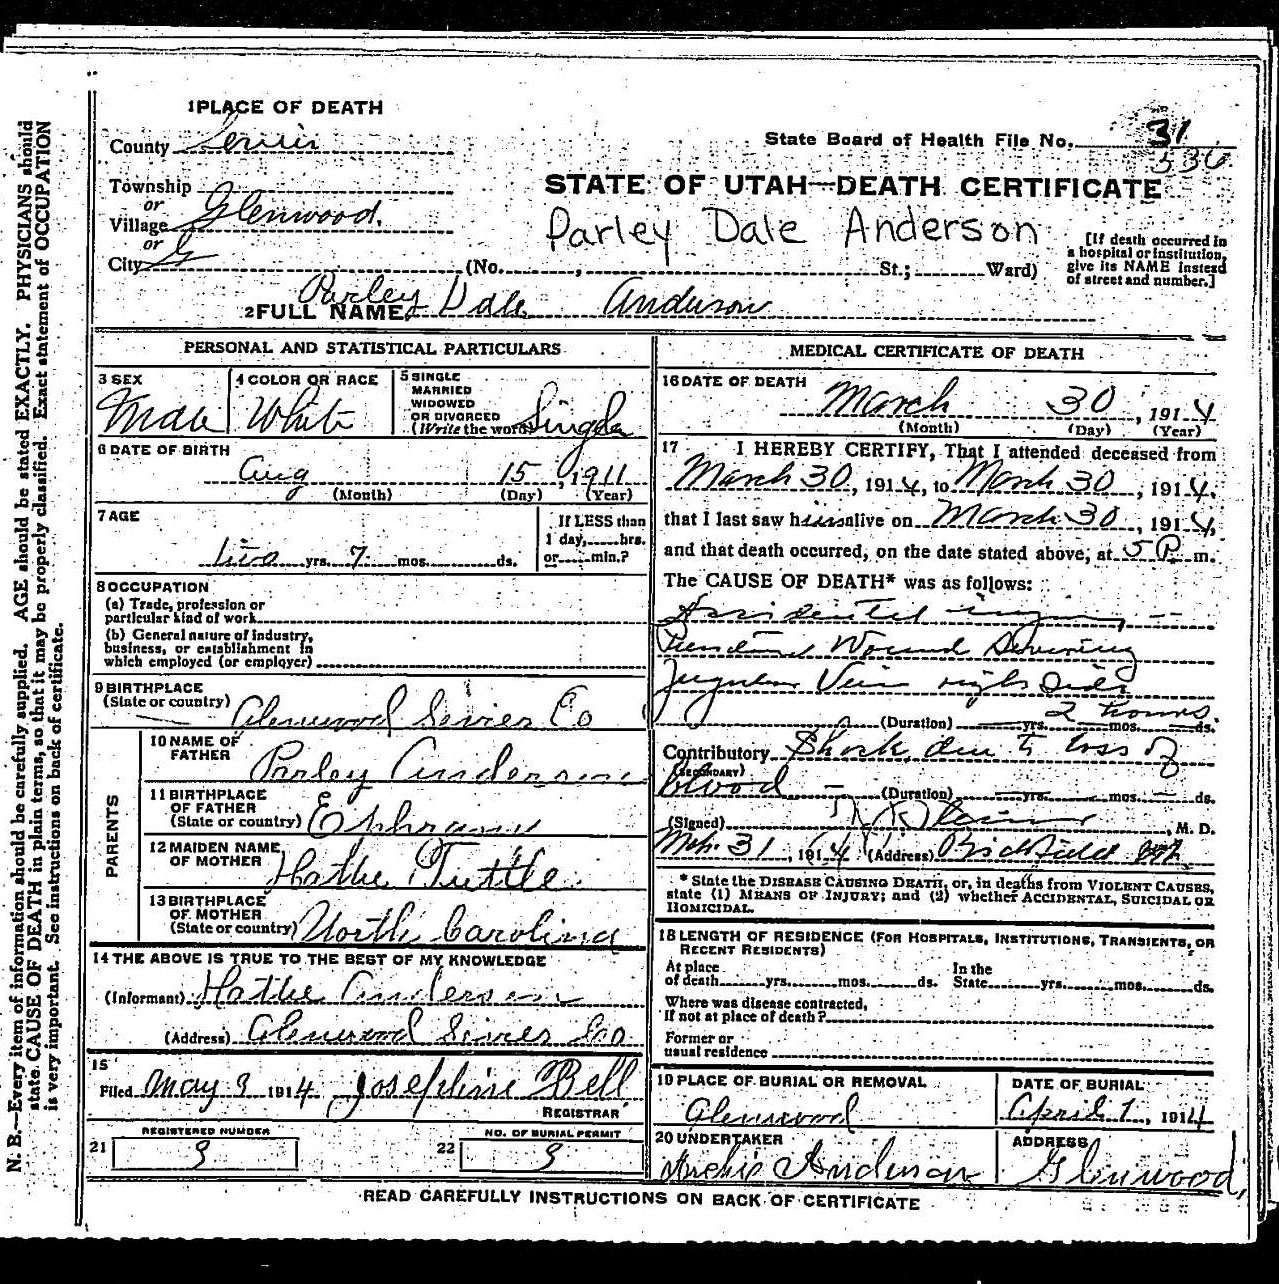 1 PLACE OF DEATH
County Sevier
State Board of Health File No. 31
536
Township
or
Village Glenwood.
or
City G
STATE OF UTAH—DEATH CERTIFICATE
Parley Dale Anderson
(No. , St.; Ward)
[If death occurred in
a hospital or institution,
give its NAME instead
of street and number.]
2 FULL NAME Parley Dale Anderson
PERSONAL AND STATISTICAL PARTICULARS
3 SEX Male
4 COLOR OR RACE White
5 SINGLE
MARRIED
WIDOWED
OR DIVORCED
(Write the word) Single
6 DATE OF BIRTH
Aug 15, 1911
(Month) (Day) (Year)
7 AGE
two yrs. 7 mos. ds.
If LESS than
1 day, hrs.
or min.?
8 OCCUPATION
(a) Trade, profession or
particular kind of work
(b) General nature of industry,
business, or establishment in
which employed (or employer)
9 BIRTHPLACE
(State or country) Glenwood Sevier Co
PARENTS
10 NAME OF
FATHER Parley Anderson
11 BIRTHPLACE
OF FATHER
(State or country) Ephraim
12 MAIDEN NAME
OF MOTHER Hattie Tuttle
13 BIRTHPLACE
OF MOTHER
(State or country) North Carolina
14 THE ABOVE IS TRUE TO THE BEST OF MY KNOWLEDGE
(Informant) Hattie Anderson
(Address) Glenwood Sevier Co
15
Filed May 9 1914 Josephine Bell
REGISTRAR
REGISTERED NUMBER
21 9
NO. OF BURIAL PERMIT
22 9
MEDICAL CERTIFICATE OF DEATH
16 DATE OF DEATH
March 30, 1914
(Month) (Day) (Year)
17 I HEREBY CERTIFY, That I attended deceased from
March 30, 1914, to March 30, 1914,
that I last saw him alive on March 30, 1914,
and that death occurred, on the date stated above, at 5 P. m.
The CAUSE OF DEATH* was as follows:
Accidental injury —
Wound Severing
Jugular Vein right Side
2 hours.
(Duration) yrs. mos. ds.
Contributory Shock due to loss of
(SECONDARY)
blood — (Duration) yrs. mos. ds.
(Signed) , M. D.
Mch. 31, 1914 (Address) Richfield Utah
* State the DISEASE CAUSING DEATH, or, in deaths from VIOLENT CAUSES,
state (1) MEANS OF INJURY; and (2) whether ACCIDENTAL, SUICIDAL OR
HOMICIDAL.
18 LENGTH OF RESIDENCE (FOR HOSPITALS, INSTITUTIONS, TRANSIENTS, OR
RECENT RESIDENTS)
At place
of death yrs. mos. ds.
In the
State yrs. mos. ds.
Where was disease contracted,
if not at place of death?
Former or
usual residence
19 PLACE OF BURIAL OR REMOVAL
Glenwood
DATE OF BURIAL
April 1, 1914
20 UNDERTAKER
Archie Anderson
ADDRESS
Glenwood,
READ CAREFULLY INSTRUCTIONS ON BACK OF CERTIFICATE
N. B.—Every item of information should be carefully supplied. AGE should be stated EXACTLY. PHYSICIANS should
state CAUSE OF DEATH in plain terms, so that it may be properly classified. Exact statement of OCCUPATION
is very important. See instructions on back of certificate.